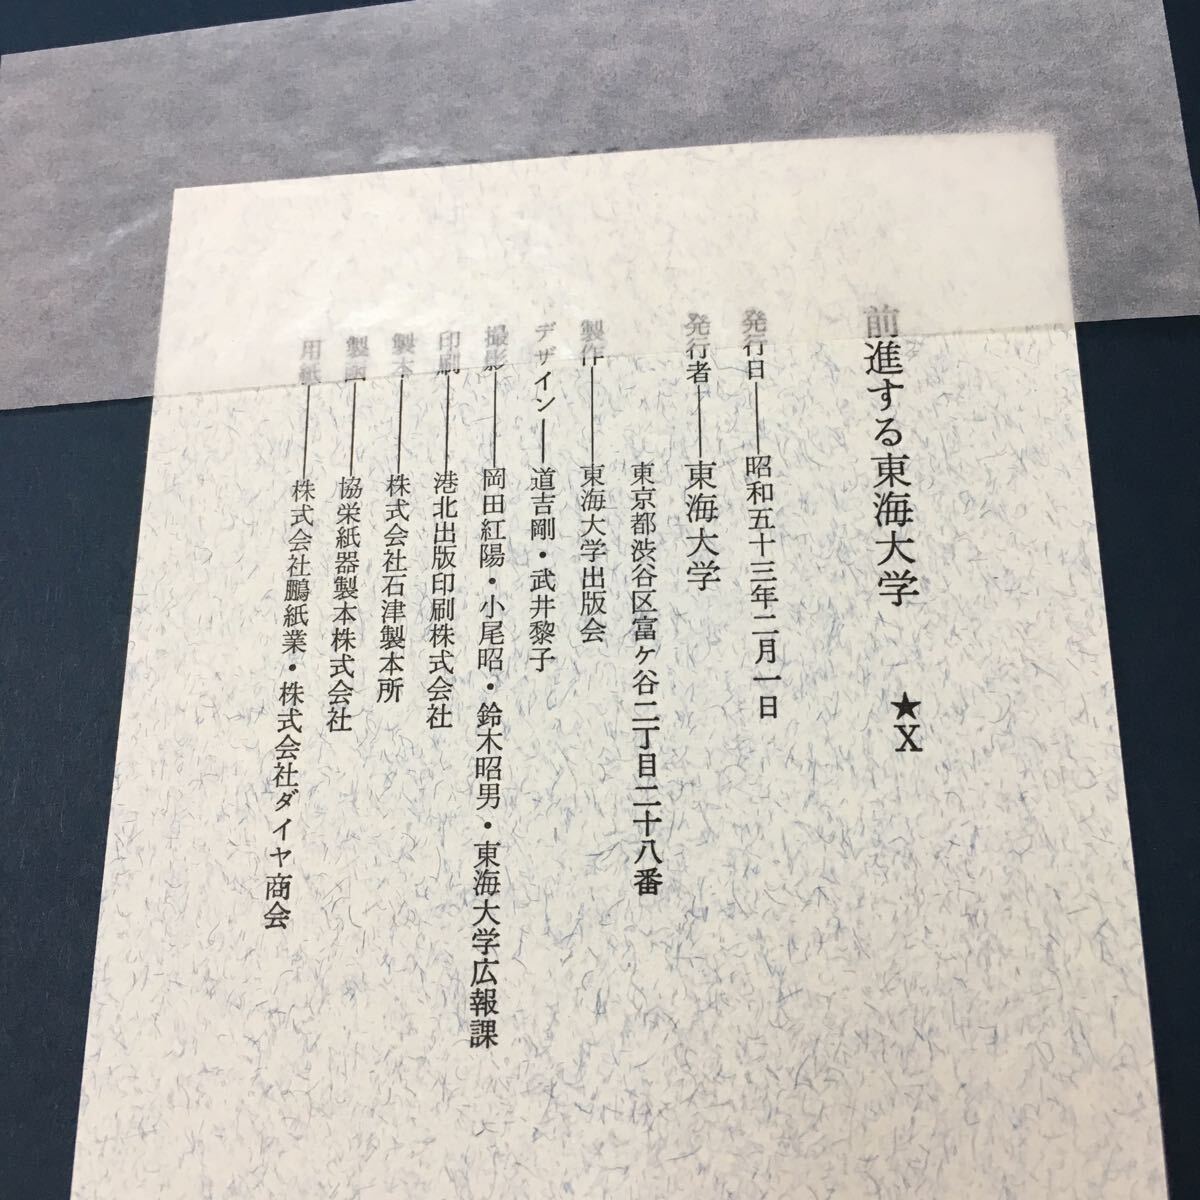 前進する東海大学 ★X
発行日——昭和五十三年二月一日
発行者——東海大学
東京都渋谷区富ケ谷二丁目二十八番
製作——東海大学出版会
デザイン——道吉剛・武井黎子
撮影——岡田紅陽・小尾昭・鈴木昭男・東海大学広報課
印刷——港北出版印刷株式会社
製本——株式会社石津製本所
製函——協栄紙器製本株式会社
用紙——株式会社鵬紙業・株式会社ダイヤ商会